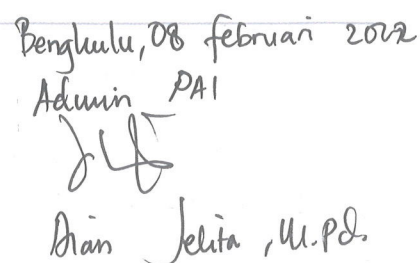 Bengkulu, 08 februari 2022
Admin PAI
Dian Jelita, M.Pd.